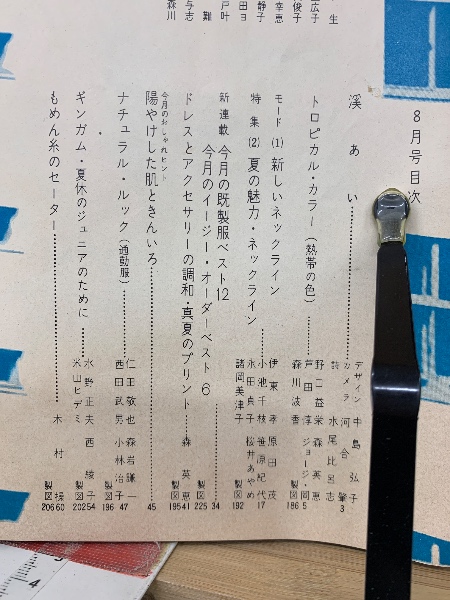 8月号目次
渓あい
デザイン 中島弘子
カメラ 河合肇
詩 水尾比呂志
3
トロピカル・カラー(熱帯の色)
野口益栄 森英恵
芦田淳 ジョージ・岡
森川波香
5
製図186
モード(1)新しいネックライン
特集(2)夏の魅力・ネックライン
伊東孝 原田茂
小池千枝 笹原紀代
永田貞子 桜井あやめ
諸岡美津子
17
製図192
新連載 今月の既製服ベスト12
34
今月のイージー・オーダーベスト6
製図225
ドレスとアクセサリーの調和・真夏のプリント
森英恵
41
製図195
今月のおしゃれヒント
陽やけした肌ときんいろ
45
ナチュラル・ルック(通勤服)
仁田敏也 森岩謙一
西田武男 小林治子
47
製図196
ギンガム・夏休のジュニアのために
水野正夫 西綾子
米山ヒデミ
54
製図202
もめん糸のセーター
木村操
60
製図206